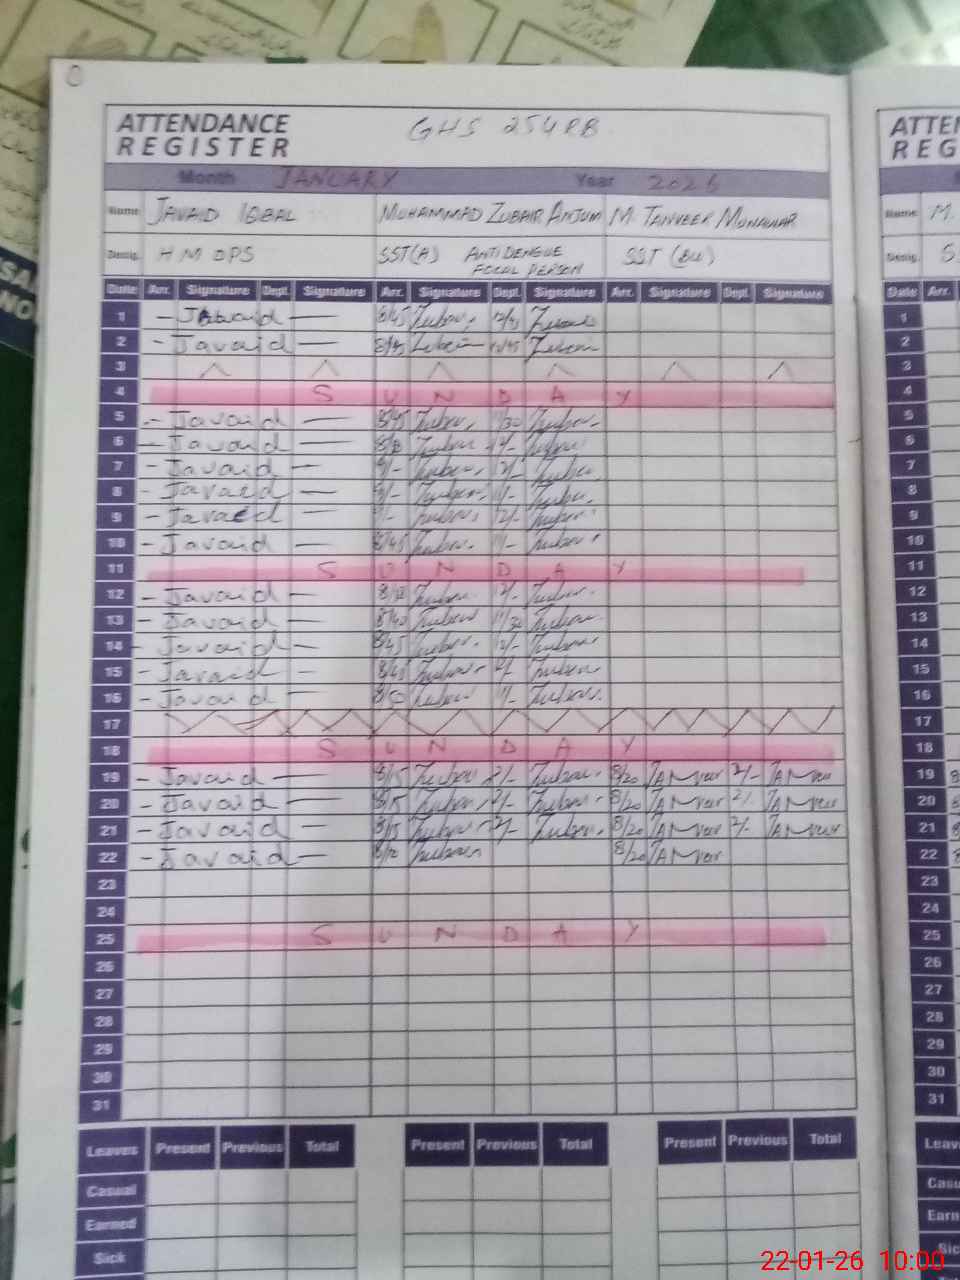 ATTENDANCE
REGISTER
GHS 254 RB
Month JANUARY Year 2026
Name JAVAID IQBAL MUHAMMAD ZUBAIR ANJUM M. TANVEER MUNAWAR
Desig. HM DPS SST(A) ANTI DENGUE FOCAL PERSON SST
Date Arr. Signature Dept. Signature Arr. Signature Dept. Signature Arr. Signature Dept. Signature
1 - Javaid — 8/45
2 - Javaid — 8/45
3
4 S U N D A Y
5 - Javaid — 8/45 Zubair 11/30 Zubair
6 - Javaid — Zubair 12/- Zubair
7 - Javaid — 9/- Zubair 12/- Zubair
8 - Javaid — 9/- Zubair 11/- Zubair
9 - Javaid — 9/- Zubair 12/- Zubair
10 - Javaid — 8/45 Zubair 11/- Zubair
11 S U N D A Y
12 - Javaid — Zubair 12/- Zubair
13 - Javaid — 8/40 Zubair 11/30 Zubair
14 - Javaid — 8/45 Zubair 12/- Zubair
15 - Javaid — 8/40 Zubair Zubair
16 - Javaid — 8/50 Zubair 11/- Zubair
17
18 S U N D A Y
19 - Javaid — 8/15 Zubair 2/- Zubair 8/20 TANveer 2/- TANveer
20 - Javaid — 8/15 Zubair 2/- Zubair 8/20 TANveer 2/- TANveer
21 - Javaid — 8/15 Zubair 2/- Zubair 8/20 TANveer 2/- TANveer
22 - Javaid — Zubair 8/20 TANveer
23
24
25 S U N D A Y
26
27
28
29
30
31
Leaves Present Previous Total Present Previous Total Present Previous Total
Casual
Earned
Sick
ATTEN
REG
Name M.
Desig. S
Date Arr.
1
2
3
4
5
6
7
8
9
10
11
12
13
14
15
16
17
18
19
20
21
22
23
24
25
26
27
28
29
30
31
Leav
Casu
Earn
Sic
22-01-26 10:00